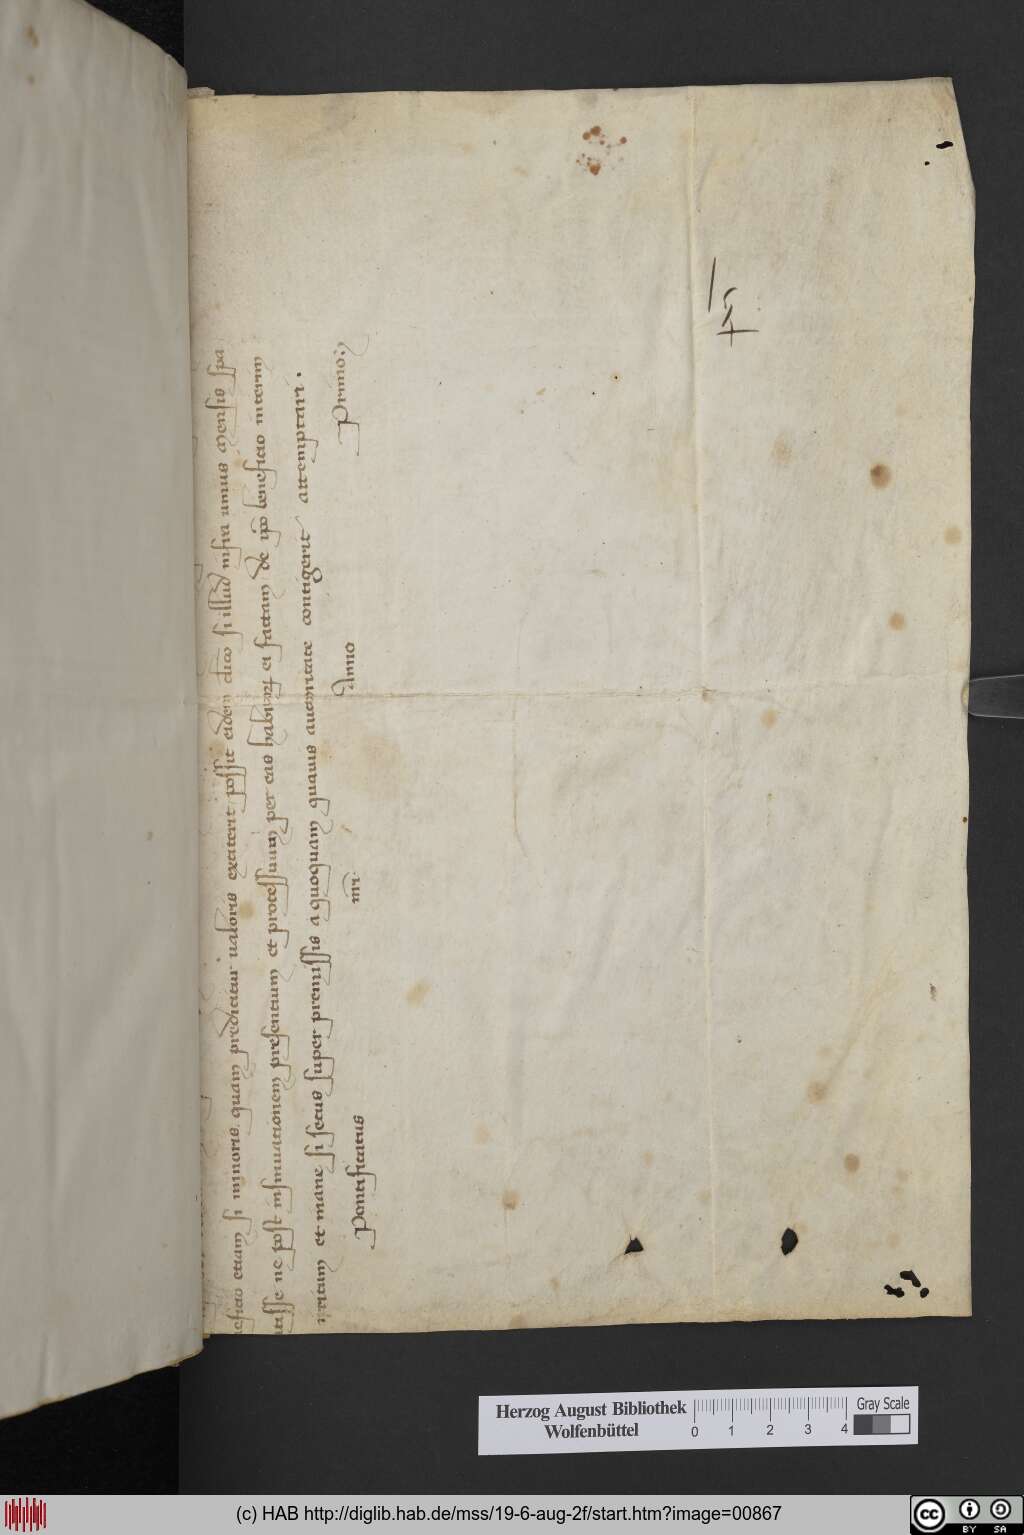 eficio etiam si minoris quam predicitur ualoris extiterit possit eidem dico si illud infra unius mensis spa
atisse ne post insinuationem presentium et processuum per eas habitor ei factam de ipo beneficio interim
irritum et inane si secus super premissis a quoquam quauis auctoritate contigerit attemptari.
Pontificatus nri Anno Primo;
Herzog August Bibliothek
Wolfenbüttel
0 1 2 3 4
Gray Scale
(c) HAB http://diglib.hab.de/mss/19-6-aug-2f/start.htm?image=00867
cc BY SA